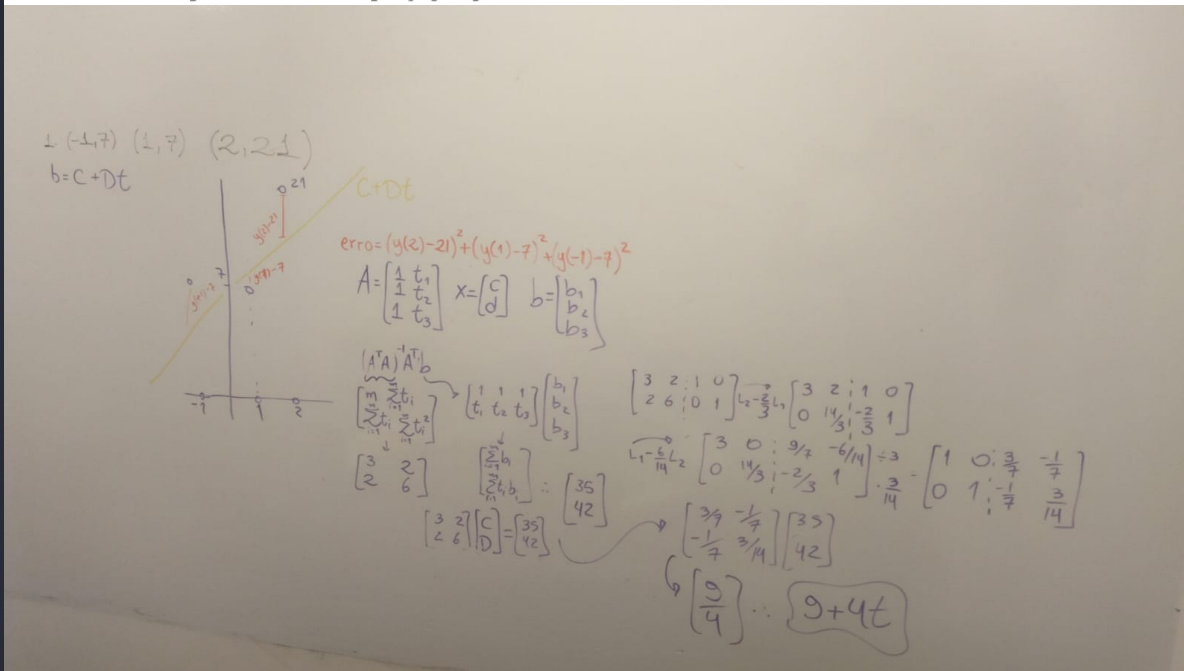 1. (-1,7) (1,7) (2,21)
b=C+Dt
21
C+Dt
y(2)-21
7
y(1)-7
-1 1 2
erro=(y(2)-21)²+(y(1)-7)²+(y(-1)-7)²
A=[1 t₁; 1 t₂; 1 t₃] x=[c; d] b=[b₁; b₂; b₃]
(AᵀA)⁻¹Aᵀb
[m Σtᵢ; Σtᵢ Σtᵢ²] [1 1 1; t₁ t₂ t₃][b₁; b₂; b₃]
[3 2; 2 6] [Σbᵢ; Σtᵢbᵢ] ∴ [35; 42]
[3 2; 2 6][C; D]=[35; 42]
[3 2 ⋮ 1 0; 2 6 ⋮ 0 1] L₂-2/3L₁ [3 2 ⋮ 1 0; 0 14/3 ⋮ -2/3 1]
L₁-6/14L₂ [3 0 ⋮ 9/7 -6/14; 0 14/3 ⋮ -2/3 1] ÷3 ·3/14 = [1 0 ⋮ 3/7 -1/7; 0 1 ⋮ -1/7 3/14]
[3/7 -1/7; -1/7 3/14][35; 42]
[9; 4] ∴ 9+4t